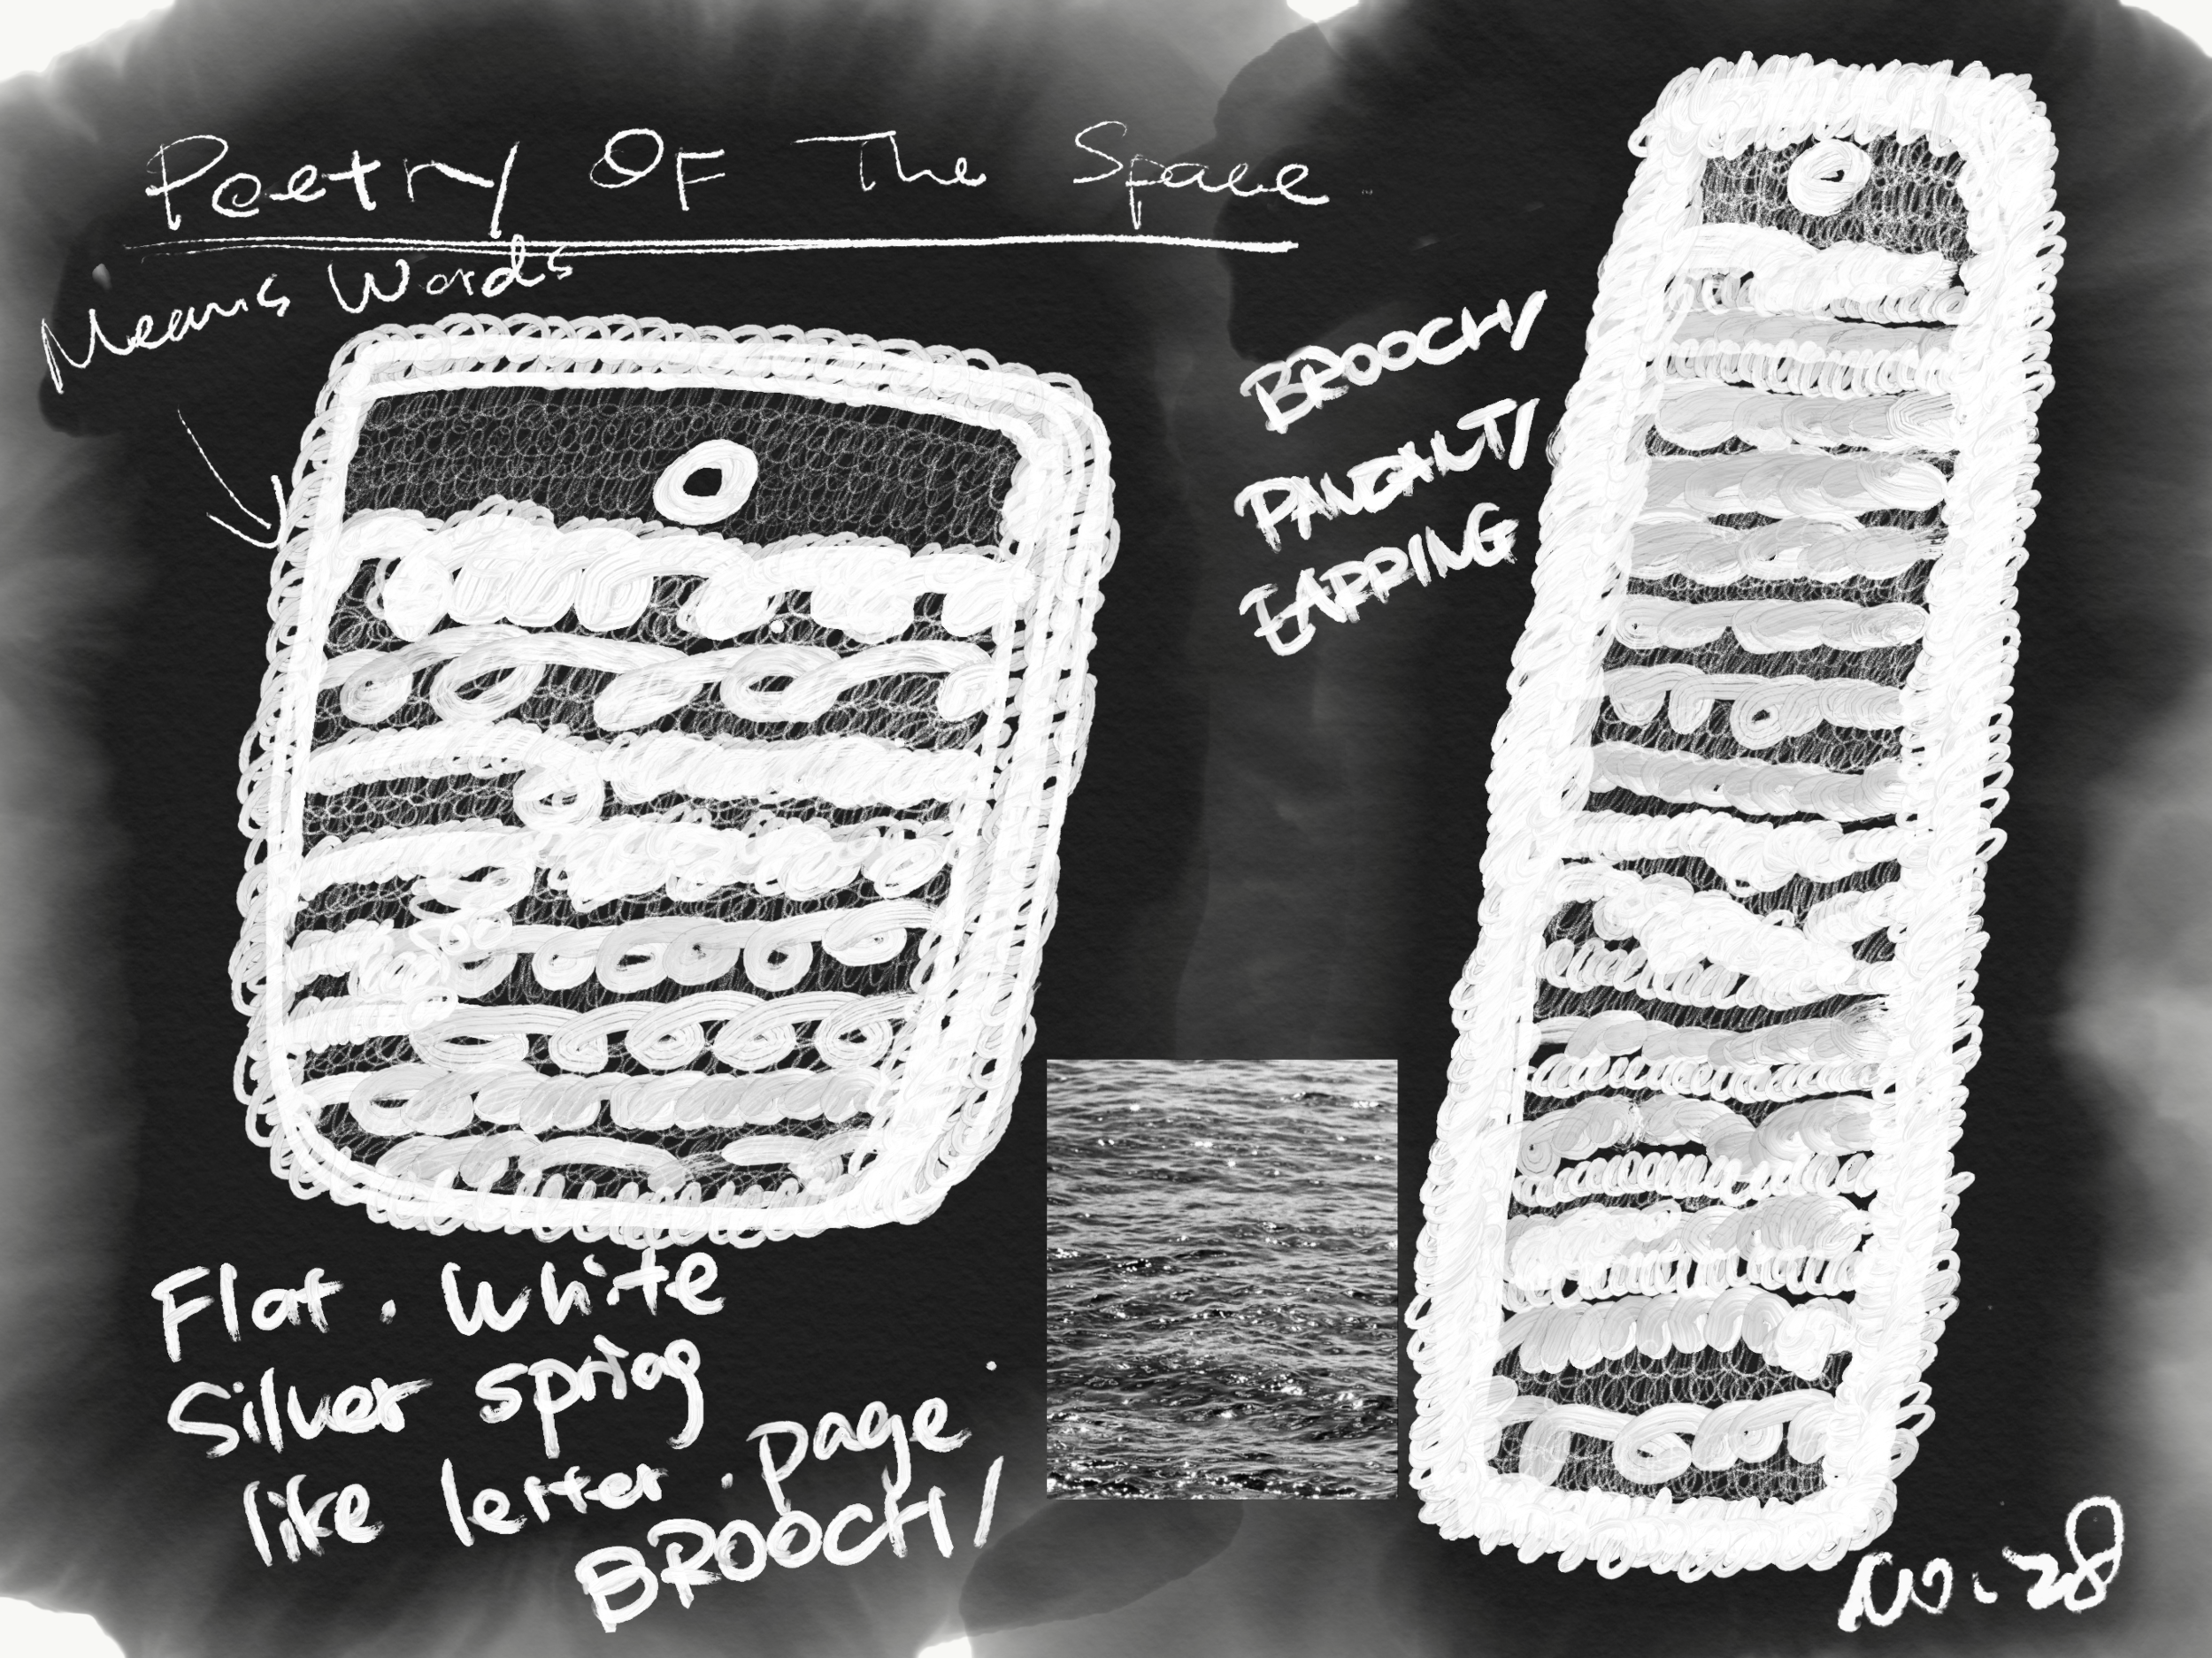 Poetry Of The Space
Means Words
BROOCH/
PANDANT/
EARRING
Flat. White
Silver spring
like letter. page
BROOCH/
No. 28